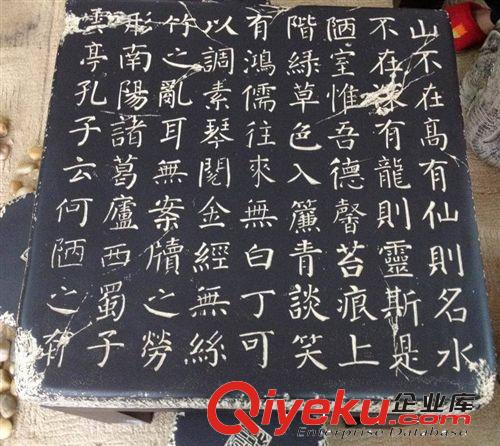 山不在高有仙則名水
不在有龍則靈斯是
陋室惟吾德馨苔痕上
階綠草色入簾青談笑
有鴻儒往來無白丁可
以調素琴閱金經無絲
竹之亂耳無案牘之勞
形南陽諸葛廬西蜀子
雲亭孔子云何陋之
Qiyeku.com 企业库
Enterprise Database